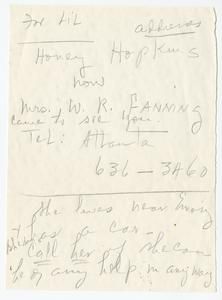 For Lil address
Honey Hopkins
now
Mrs. W. R. Fanning
came to see you.
Tel: Atlanta
636 — 3460
She lives near Emory
& has a car —
Call her if she can
be of any help in any way